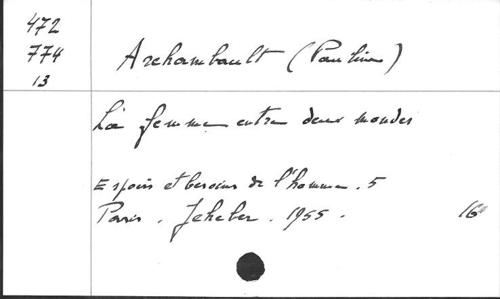 472
774
13
Archambault (Pauline)
La femme entre deux mondes
Espoirs et besoins de l'homme. 5
Paris. Jeheber. 1955.
16°